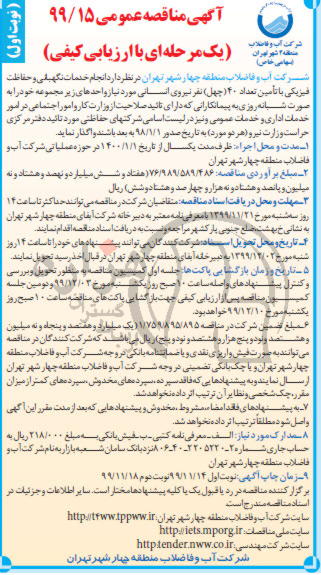 آگهی مناقصه عمومی ۹۹/۱۵
(یک مرحله‌ای با ارزیابی کیفی)
(نوبت اول)
شرکت آب و فاضلاب
منطقه ۴ شهر تهران
(سهامی خاص)
شرکت آب و فاضلاب منطقه چهار شهر تهران در نظر دارد انجام خدمات نگهبانی و حفاظت
فیزیکی با تأمین تعداد ۴۰ (چهل) نفر نیروی انسانی مورد نیاز واحدهای زیر مجموعه خود را به
صورت شبانه‌روزی به پیمانکارانی که دارای تائید صلاحیت از وزارت کار و امور اجتماعی در امور
خدمات اداری و خدمات عمومی و نیز در لیست اسامی شرکتهای حفاظتی مورد تائید دفتر مرکزی
حراست وزارت نیرو (هر دو مورد) به تاریخ صدور ۹۸/۱/۱ به بعد باشند واگذار نماید.
۱-مدت و محل اجراء: ظرف مدت یکسال از تاریخ ۱۴۰۰/۱/۱ در حوزه عملیاتی شرکت آب و
فاضلاب منطقه چهار شهر تهران
۲-مبلغ برآوردی مناقصه: ۷۶/۹۸۹/۵۸۹/۴۸۶ (هفتاد و شش میلیارد و نهصد و هشتاد و نه
میلیون و پانصد و هشتاد و نه هزار و چهارصد و هشتاد و شش) ریال
۳-مهلت و محل دریافت اسناد مناقصه: متقاضیان شرکت در مناقصه می‌توانند حداکثر تا ساعت ۱۴
روز سه‌شنبه مورخ ۱۳۹۹/۱۱/۲۱ با معرفی‌نامه معتبر به دبیرخانه شرکت آبفای منطقه چهار شهر تهران
به نشانی ضلع جنوبی پارکشهر مراجعه و نسبت به دریافت اسناد مناقصه اقدام نمایند.
۴-تاریخ و محل تحویل اسناد: شرکت کنندگان می توانند پیشنهادهای خود را تا ساعت ۱۴ روز
شنبه مورخ ۱۳۹۹/۱۲/۰۲ به دبیرخانه آبفای منطقه چهار شهر تهران در قبال اخذ رسید تحویل نمایند.
۵-تاریخ و زمان بازگشایی پاکت‌ها: جلسه اول کمیسیون مناقصه به منظور تحویل و بررسی
و کنترل پیشنهادهای واصله ساعت ۱۰ صبح روز یکشنبه مورخ ۹۹/۱۲/۰۳ و دومین جلسه
کمیسیون مناقصه پس از ارزیابی کیفی جهت بازگشایی پاکت‌های مناقصه ساعت ۱۰ صبح روز
یکشنبه مورخ ۹۹/۱۲/۱۰ خواهد بود.
۶-مبلغ تضمین شرکت در مناقصه ۱/۷۵۹/۸۹۵/۸۹۵ (یک میلیارد و هفتصد و پنجاه و نه میلیون
و هشتصد و نود و پنج هزار و هشتصد و نود و پنج) ریال می‌باشد که شرکت کنندگان در مناقصه
می‌توانند به صورت فیش واریزی نقدی و یا ضمانتنامه بانکی در وجه شرکت آب و فاضلاب منطقه
چهار شهر تهران و یا چک بانکی تضمینی در وجه شرکت آب و فاضلاب منطقه چهار شهر تهران
ارسال نمایند و به پیشنهادهایی که فاقد سپرده، سپرده‌های مخدوش، سپرده‌های کمتر از میزان
مقرر، چک شخصی و نظایر آن ترتیب اثر داده نخواهد شد.
۷-به پیشنهادهای فاقد امضاء، مشروط، مخدوش و پیشنهادهایی که بعد از مدت مقرر این آگهی
واصل شود مطلقا ترتیب اثر داده نخواهد شد.
۸-مدارک مورد نیاز: الف- معرفی‌نامه کتبی ب- فیش بانکی به مبلغ ۲۱۸/۰۰۰ ریال به
شرکت آب و
فاضلاب منطقه چهار شهر تهران
۹-زمان چاپ آگهی: نوبت اول ۹۹/۱۱/۱۴ نوبت دوم ۹۹/۱۱/۱۸
برگزار کننده مناقصه در رد یا قبول یک یا کلیه پیشنهادها مختار است. سایر اطلاعات و جزئیات در
اسناد مناقصه مندرج است.
سایت شرکت آب و فاضلاب منطقه چهار شهر تهران: http://t4ww.tpww.ir
سایت ملی مناقصات: http://iets.mporg.ir
سایت شرکت مهندسی: http:tender.nww.co.ir
شرکت آب و فاضلاب منطقه چهار شهر تهران